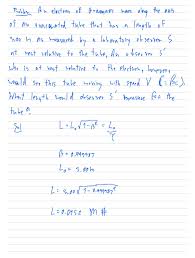 Problem: An electron of β=0.999987 moves along the axis
of an evacuated tube that has a length of
3.00 m as measured by a laboratory observer S
at rest relative to the tube. An observer S'
who is at rest relative to the electron, however,
would see this tube moving with speed V (=βc).
What length would observer S' measure for the
tube?
L = L₀√1-β² = L₀/γ
β = 0.999987
L₀ = 3.00m
L = 3.00√1-0.999987²
L = 0.0150 m #